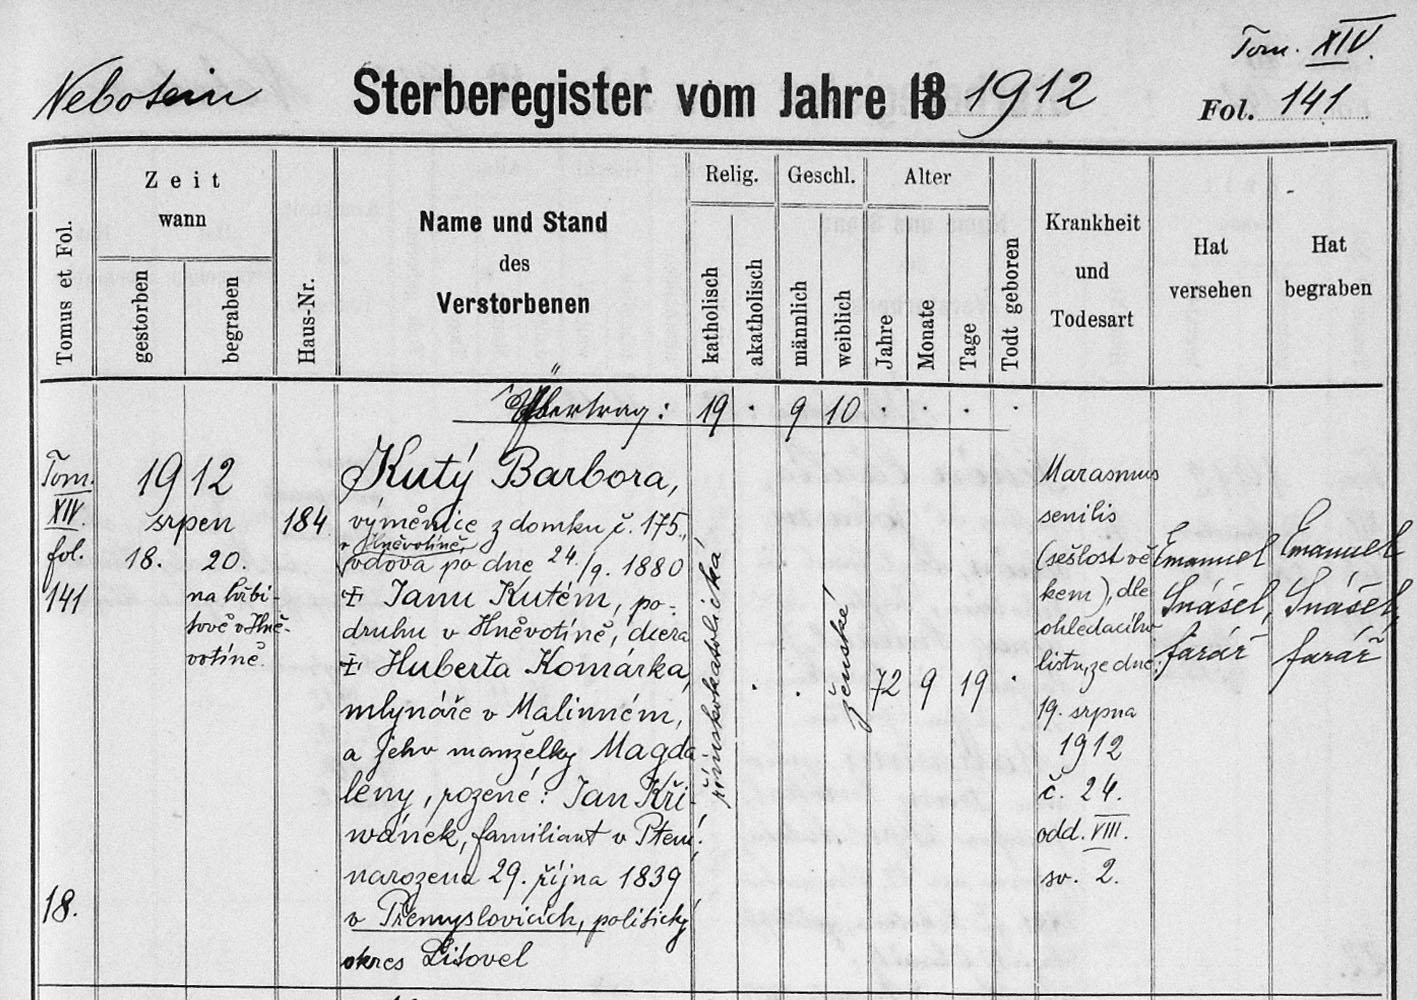 Tom. XIV.
Nebotein Sterberegister vom Jahre 18 1912 Fol. 141
Tomus et Fol.
Zeit
wann
gestorben
begraben
Haus-Nr.
Name und Stand
des
Verstorbenen
Relig.
katholisch
akatholisch
Geschl.
männlich
weiblich
Alter
Jahre
Monate
Tage
Todt geboren
Krankheit
und
Todesart
Hat
versehen
Hat
begraben
Übertrag: 19 . 9 10 . . . .
Tom.
XIV.
fol.
141
18.
1912
srpen
18. 20.
na hřbi-
tově v Hně-
votíně.
184
Kutý Barbora,
výměnice z domku č. 175.,
v Hněvotíně,
vdova po dne 24./9. 1880
† Janu Kutém, po-
druhu v Hněvotíně, dcera
† Huberta Komárka,
mlynáře v Malinném,
a jeho manželky Magda-
leny, rozené? Jan Kři-
wánek, familiant v Ptení;
narozena 29. října 1839
v Přemyslovicích, politický
okres Litovel
římskokatolická
.
.
ženské
72 9 19 .
Marasmus
senilis
(sešlost vě-
kem), dle
ohledacího
listu, ze dne:
19. srpna
1912
č. 24.
odd. VIII.
sv. 2.
Emanuel
Snášel,
farář
Emanuel
Snášel,
farář